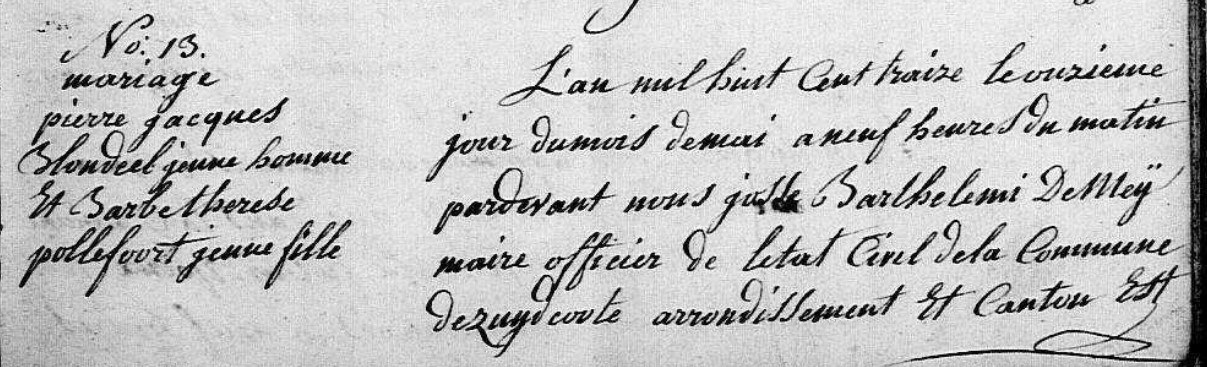 No: 13.
mariage
pierre jacques
Blondeel jeune homme
Et Barbe therese
pollefoort jeune fille
L'an mil huit Cent traize le onzieme
jour du mois de mai a neuf heures du matin
pardevant nous josse Barthelemi DeMeÿ
maire officier de letat Civil dela Commune
dezuydcoote arrondissement Et Canton Est